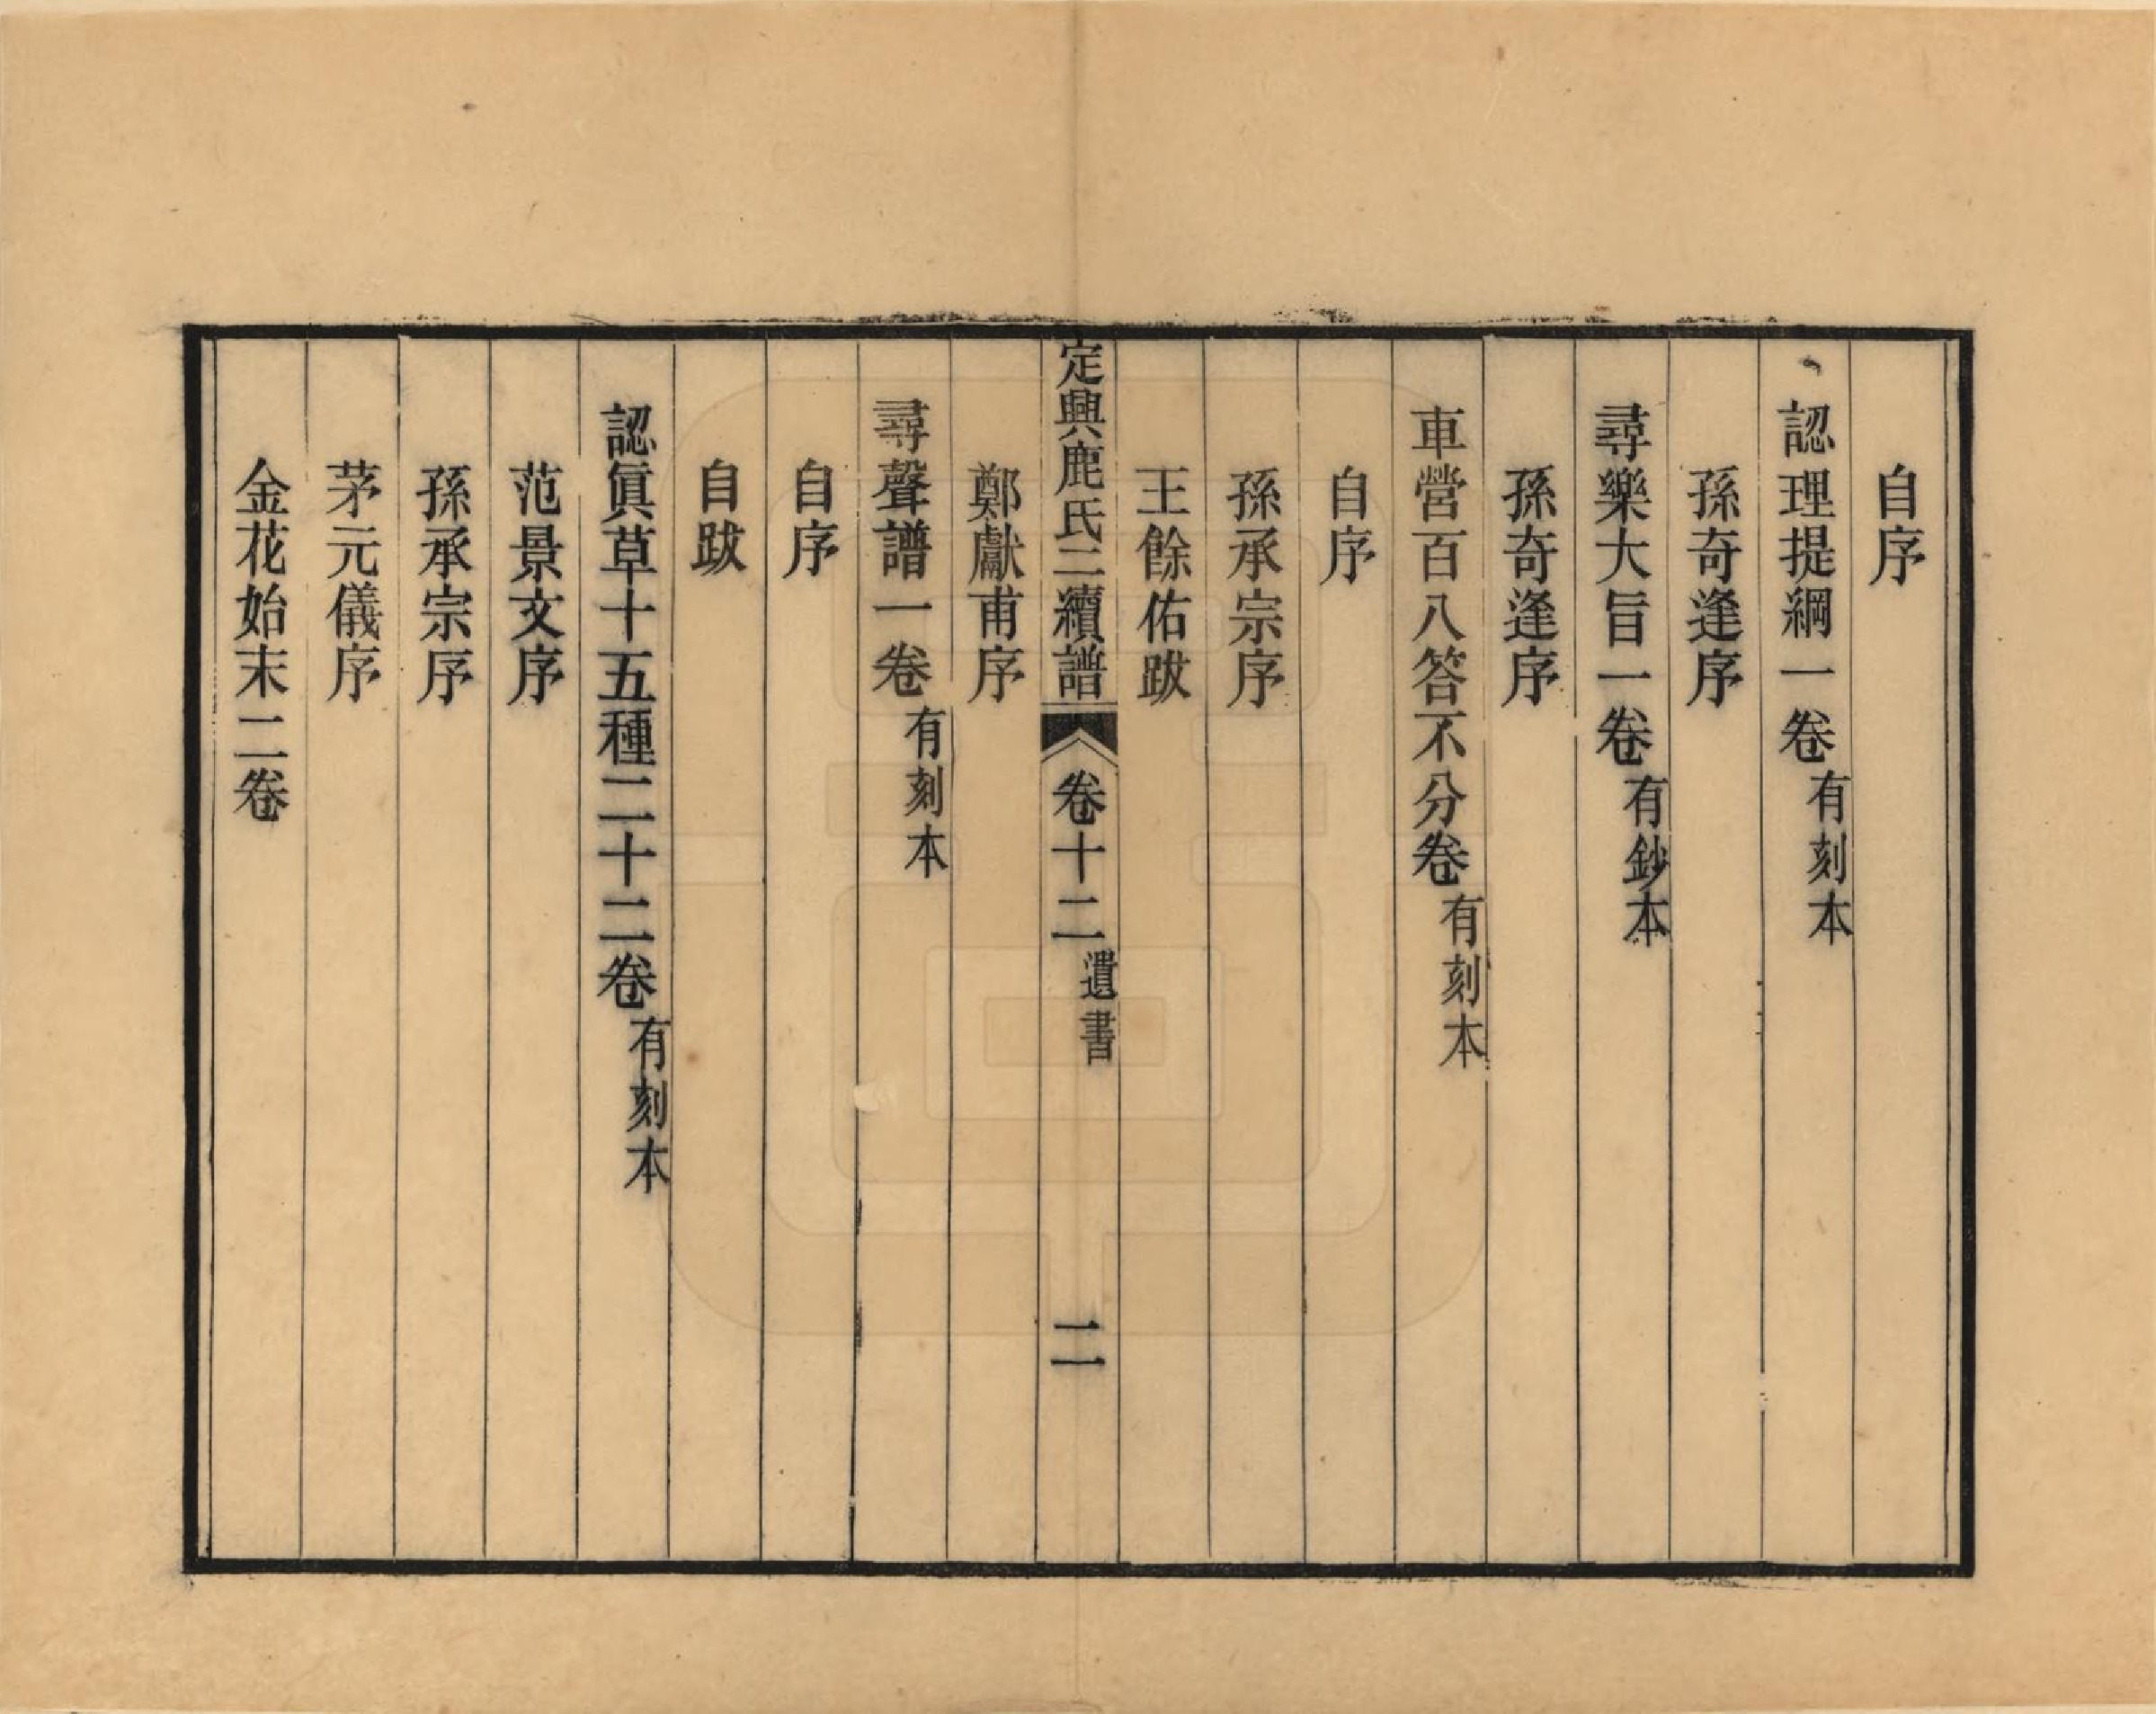 自序
認理提綱一卷有刻本
孫奇逢序
尋樂大旨一卷有鈔本
孫奇逢序
車營百八答不分卷有刻本
自序
孫承宗序
王餘佑跋
定興鹿氏二續譜 卷十二遺書 二
鄭獻甫序
尋聲譜一卷有刻本
自序
自跋
認眞草十五種二十二卷有刻本
范景文序
孫承宗序
茅元儀序
金花始末二卷